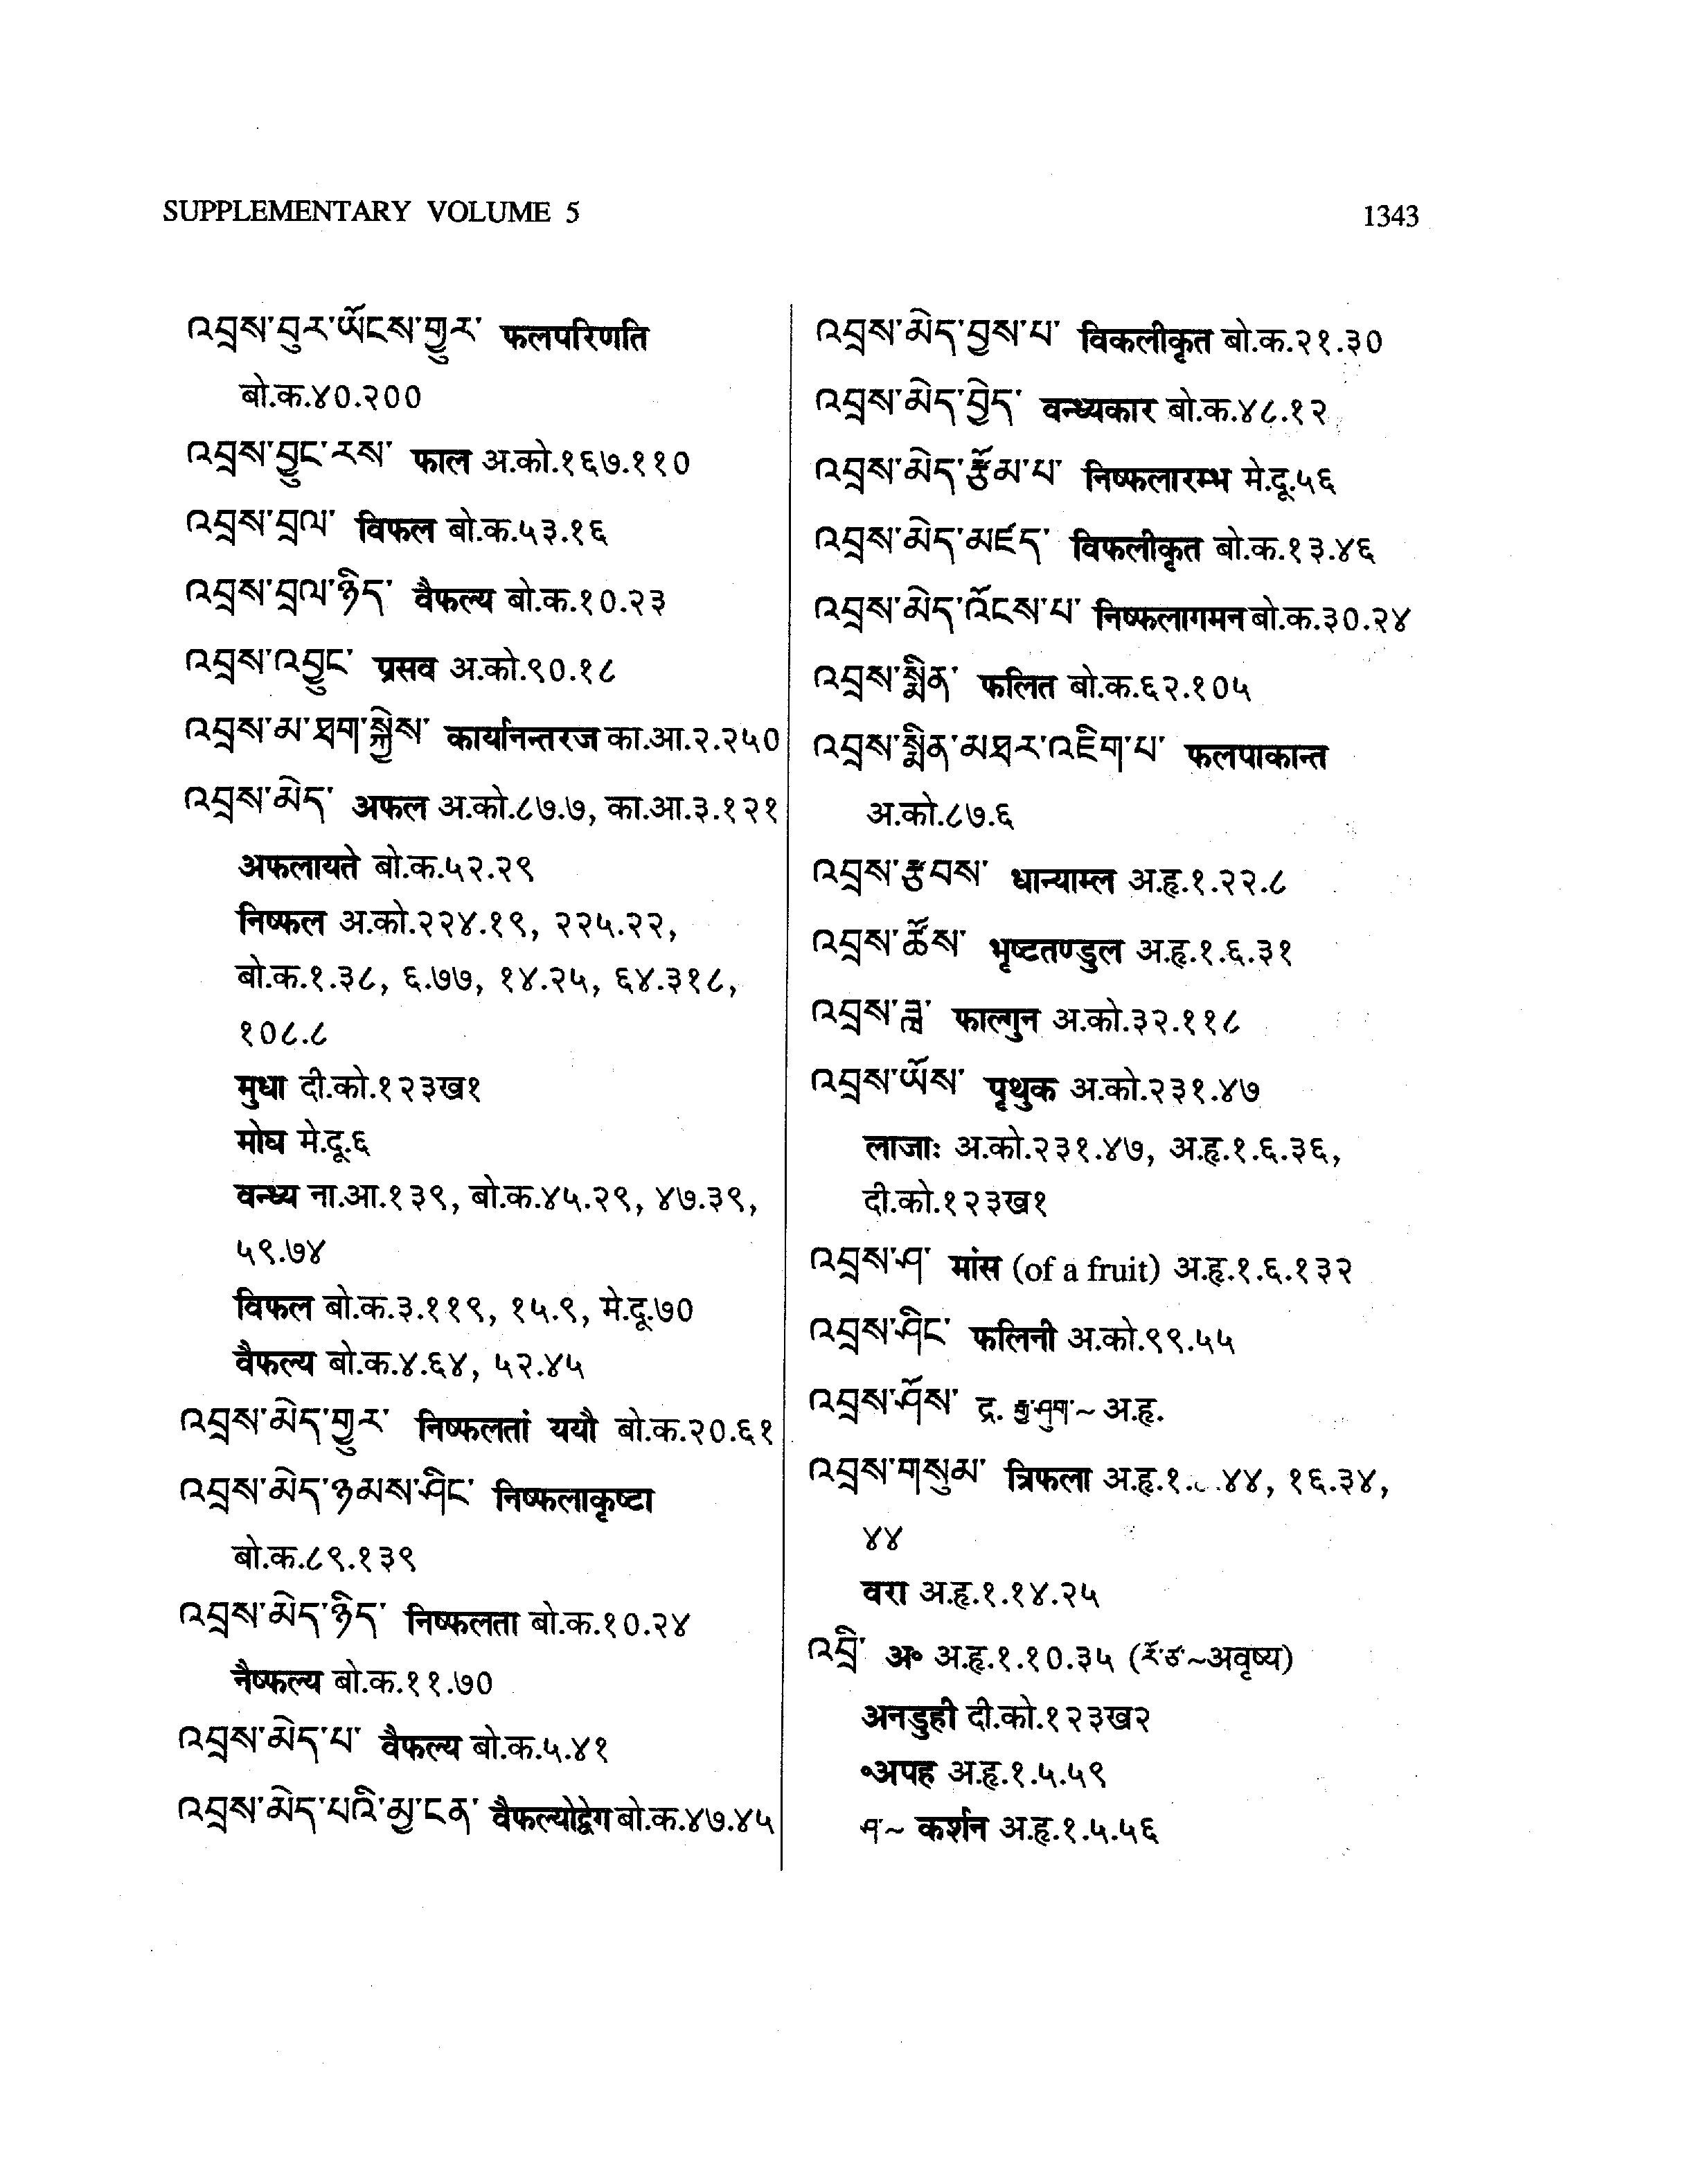 SUPPLEMENTARY VOLUME 5
1343
འབྲས་བུར་ཡོངས་གྱུར་ फलपरिणति
बो.क.४०.२००
འབྲས་བྱུང་རས་ फाल अ.को.१६७.११०
འབྲས་བྲལ་ विफल बो.क.५३.१६
འབྲས་བྲལ་ཉིད་ वैफल्य बो.क.१०.२३
འབྲས་འབྱུང་ प्रसव अ.को.९०.१८
འབྲས་མ་ཐག་སྐྱེས་ कार्यानन्तरज का.आ.२.२५०
འབྲས་མེད་ अफल अ.को.८७.७, का.आ.३.१२१
अफलायते बो.क.५२.२९
निष्फल अ.को.२२४.१९, २२५.२२,
बो.क.१.३८, ६.७७, १४.२५, ६४.३१८,
१०८.८
मुधा दी.को.१२३ख१
मोघ मे.दू.६
वन्ध्य ना.आ.१३९, बो.क.४५.२९, ४७.३९,
५९.७४
विफल बो.क.३.११९, १५.९, मे.दू.७०
वैफल्य बो.क.४.६४, ५२.४५
འབྲས་མེད་གྱུར་ निष्फलतां ययौ बो.क.२०.६१
འབྲས་མེད་ཉམས་ཤིང་ निष्फलाकृष्टा
बो.क.८९.१३९
འབྲས་མེད་ཉིད་ निष्फलता बो.क.१०.२४
नैष्फल्य बो.क.११.७०
འབྲས་མེད་པ་ वैफल्य बो.क.५.४१
འབྲས་མེད་པའི་མྱ་ངན་ वैफल्योद्वेग बो.क.४७.४५
འབྲས་མེད་བྱས་པ་ विकलीकृत बो.क.२१.३०
འབྲས་མེད་བྱེད་ वन्ध्यकार बो.क.४८.१२
འབྲས་མེད་རྩོམ་པ་ निष्फलारम्भ मे.दू.५६
འབྲས་མེད་མཛད་ विफलीकृत बो.क.१३.४६
འབྲས་མེད་འོངས་པ་ निष्फलागमन बो.क.३०.२४
འབྲས་སྨིན་ फलित बो.क.६२.१०५
འབྲས་སྨིན་མཐར་འཇིག་པ་ फलपाकान्त
अ.को.८७.६
འབྲས་རྩབས་ धान्याम्ल अ.हृ.१.२२.८
འབྲས་ཚོས་ भृष्टतण्डुल अ.हृ.१.६.३१
འབྲས་ཟླ་ फाल्गुन अ.को.३२.११८
འབྲས་ཡོས་ पृथुक अ.को.२३१.४७
लाजाः अ.को.२३१.४७, अ.हृ.१.६.३६,
दी.को.१२३ख१
འབྲས་ཤ་ मांस (of a fruit) अ.हृ.१.६.१३२
འབྲས་ཤིང་ फलिनी अ.को.९९.५५
འབྲས་ཤོས་ द्र. རྒྱ་ཤུག་~ अ.हृ.
འབྲས་གསུམ་ त्रिफला अ.हृ.१. .४४, १६.३४,
४४
वरा अ.हृ.१.१४.२५
འབྲི་ अ॰ अ.हृ.१.१०.३५ (རོ་ཙ་~अवृष्य)
अनडुही दी.को.१२३ख२
॰अपह अ.हृ.१.५.५९
ཤ་~ कर्शन अ.हृ.१.५.५६